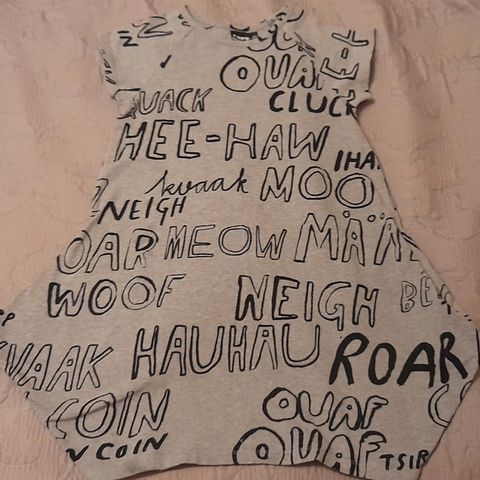 OUAF
QUACK CLUCK
HEE-HAW
kvaak MOO IHA
NEIGH
OAR MEOW MÄÄ
WOOF NEIGH BE
VAAK HAUHAU ROAR
COIN OUAF
N COIN OUAF TSIR